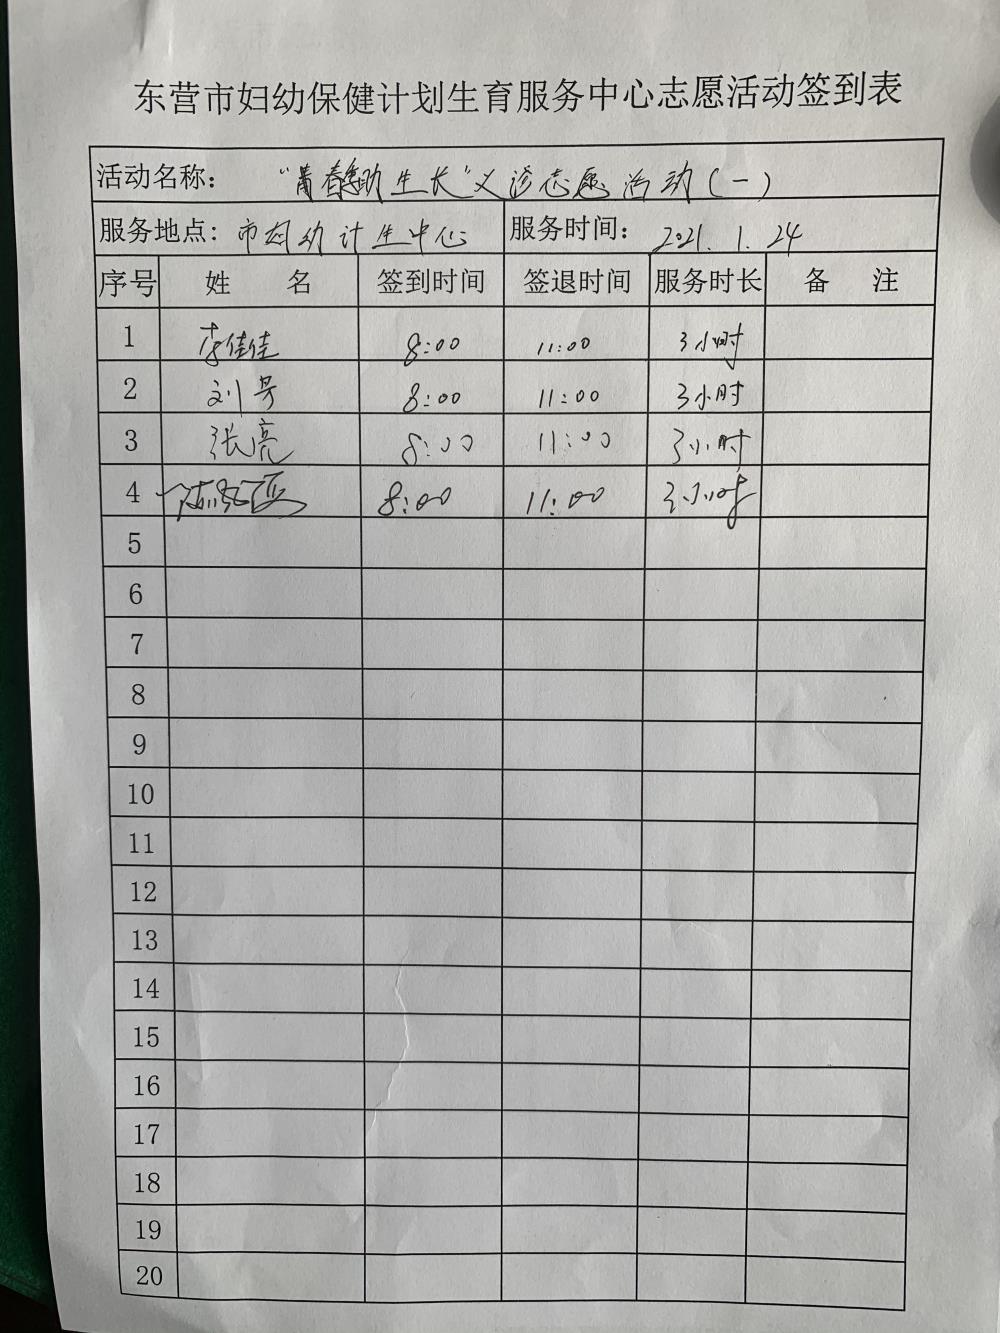 东营市妇幼保健计划生育服务中心志愿活动签到表
活动名称: “青春助生长”义诊志愿活动(一)
服务地点: 市妇幼计生中心 服务时间: 2021.1.24
序号 姓名 签到时间 签退时间 服务时长 备注
1 李佳佳 8:00 11:00 3小时
2 刘 8:00 11:00 3小时
3 张亮 8:00 11:00 3小时
4 8:00 11:00 3小时
5
6
7
8
9
10
11
12
13
14
15
16
17
18
19
20